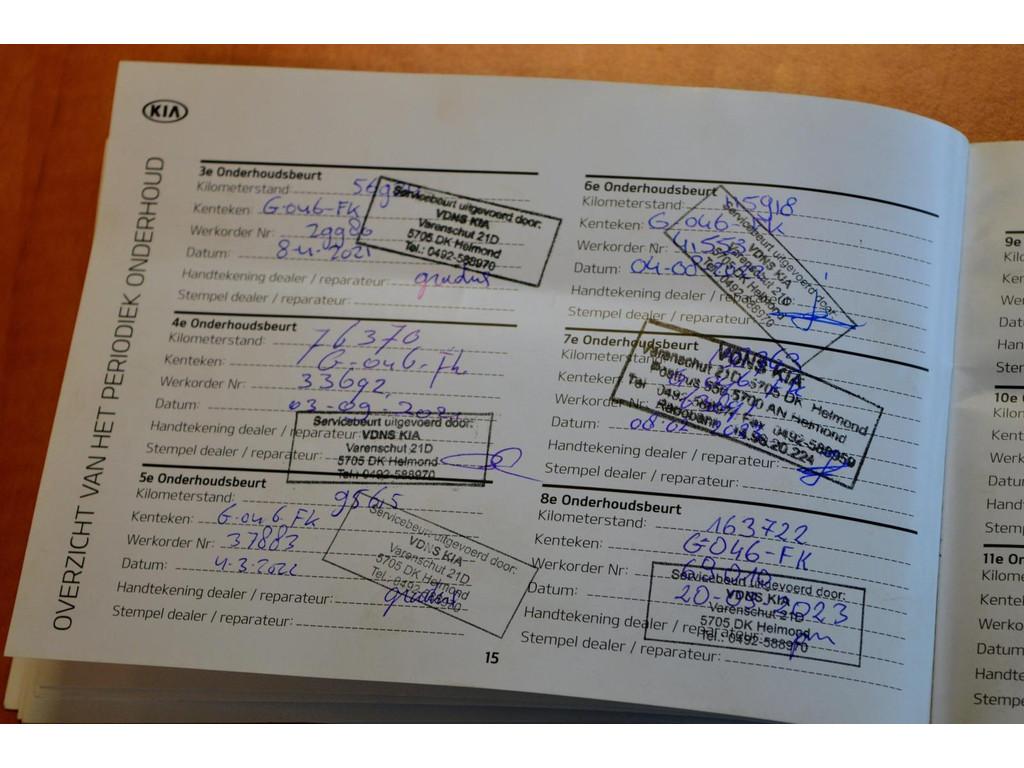 KIA
OVERZICHT VAN HET PERIODIEK ONDERHOUD
3e Onderhoudsbeurt
Kilometerstand
Kenteken: G-046-FK
Werkorder Nr: 29986
Datum: 8-4-2021
Handtekening dealer / reparateur:
Stempel dealer / reparateur:
Servicebeurt uitgevoerd door:
VDNS KIA
Varenschut 21D
5705 DK Helmond
Tel.: 0492-588970
4e Onderhoudsbeurt
Kilometerstand: 76370
Kenteken: G-046-FK
Werkorder Nr: 33692
Datum: 03-09-2021
Handtekening dealer / reparateur:
Stempel dealer / reparateur:
Servicebeurt uitgevoerd door:
VDNS KIA
Varenschut 21D
5705 DK Helmond
Tel.: 0492-588970
5e Onderhoudsbeurt
Kilometerstand: 95615
Kenteken: G-046-FK
Werkorder Nr: 37883
Datum: 4-3-2022
Handtekening dealer / reparateur:
Stempel dealer / reparateur:
Servicebeurt uitgevoerd door:
VDNS KIA
Varenschut 21D
5705 DK Helmond
Tel.: 0492-588970
6e Onderhoudsbeurt
Kilometerstand: 115918
Kenteken: G-046-FK
Werkorder Nr: 41553
Datum:
Handtekening dealer / reparateur:
Stempel dealer / reparateur:
Servicebeurt uitgevoerd door:
VDNS KIA
Varenschut 21D
5705 DK Helmond
Tel.: 0492-588970
7e Onderhoudsbeurt
Kilometerstand
Kenteken
Werkorder Nr:
Datum: 08-02-2023
Handtekening dealer / reparateur:
Stempel dealer / reparateur:
VDNS KIA
Varenschut 21D, 5705 DK Helmond
Postbus 556, 5700 AN Helmond
Tel. 0492-588970 Fax 0492-588959
Rabobank 14.98.20.224
8e Onderhoudsbeurt
Kilometerstand: 163722
Kenteken: G-046-FK
Werkorder Nr:
Datum:
Handtekening dealer / reparateur:
Stempel dealer / reparateur:
Servicebeurt uitgevoerd door:
VDNS KIA
Varenschut 21D
5705 DK Helmond
Tel.: 0492-588970
15
9e
10e
11e